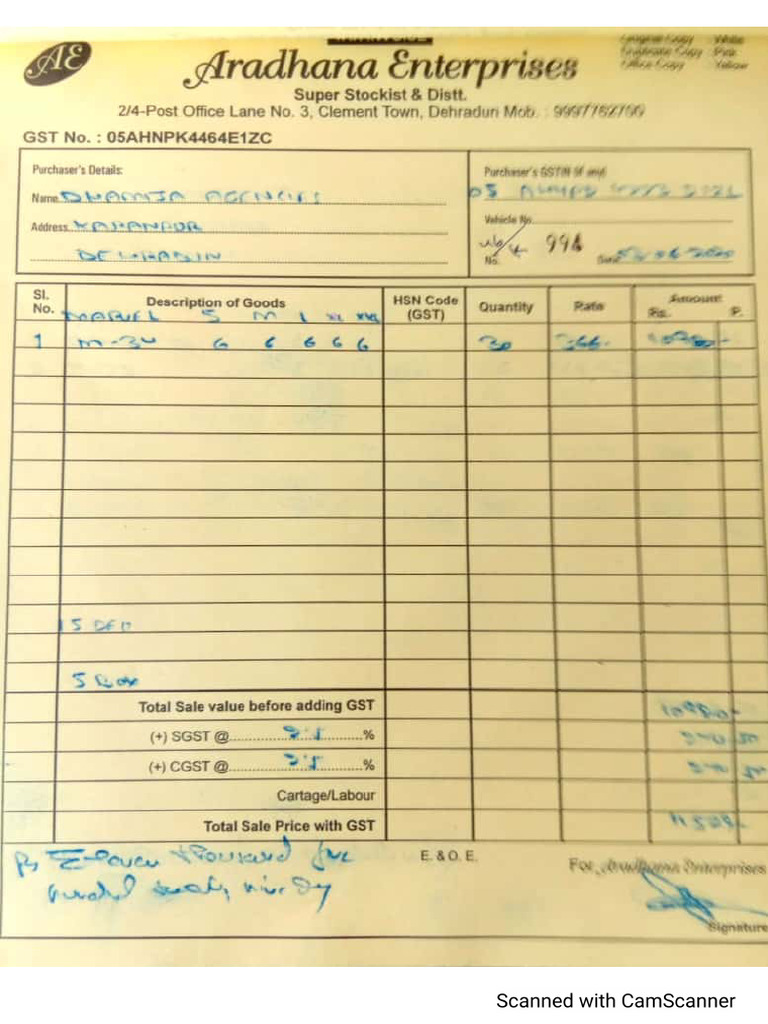 AE
Original Copy : White
Duplicate Copy : Pink
Office Copy : Yellow
Aradhana Enterprises
Super Stockist & Distt.
2/4-Post Office Lane No. 3, Clement Town, Dehradun Mob. : 9997762700
GST No. : 05AHNPK4464E1ZC
Purchaser's Details:
Purchaser's GSTIN (if any)
Name DHAMIJA AGENCIES
05
Address
Vehicle No.
No. 994
Date
Sl. No. Description of Goods HSN Code (GST) Quantity Rate Amount Rs. P.
MARVEL S M L XL XXL
1 M-34 6 6 6 6 6 30 366- 10980-
5 Box
Total Sale value before adding GST 10980-
(+) SGST @ 2.5 %
(+) CGST @ 2.5 %
Cartage/Labour
Total Sale Price with GST 11529-
Rs Eleven thousand five
E. & O. E.
For Aradhana Enterprises
Signature
Scanned with CamScanner